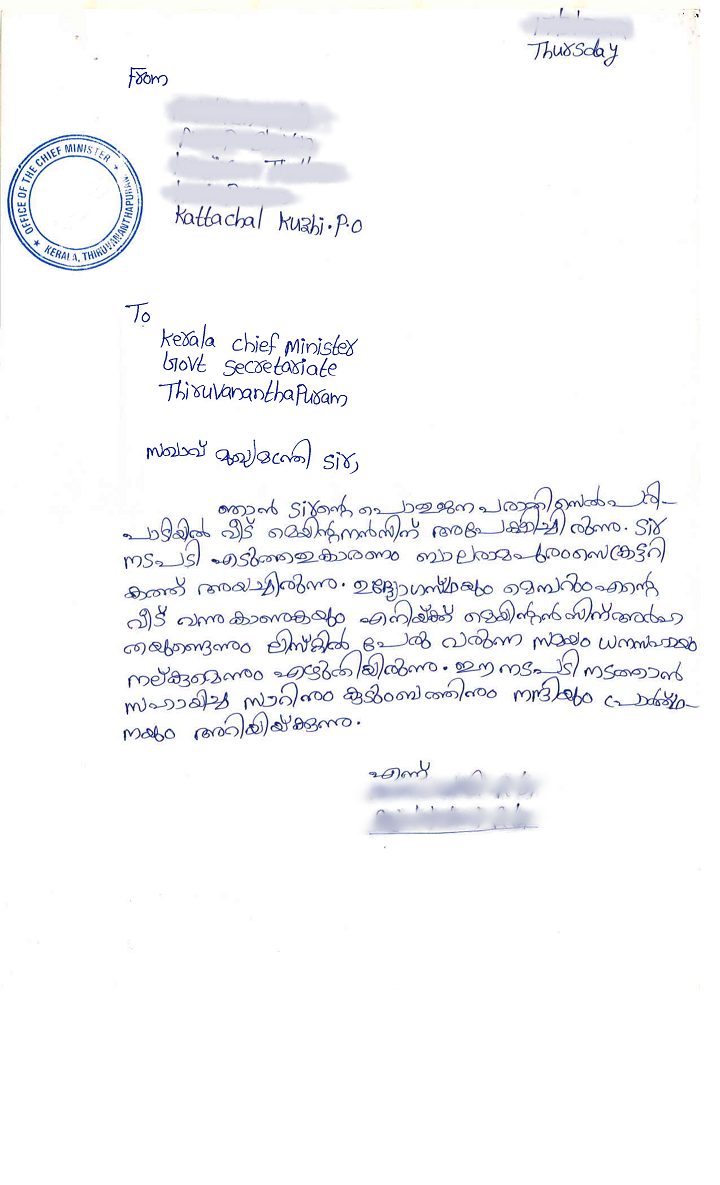 Thursday
From
OFFICE OF THE CHIEF MINISTER
★ KERALA, THIRUVANANTHAPURAM ★
Kattachal Kuzhi.P.O
To
Kerala Chief Minister
Govt Secretariate
Thiruvananthapuram
സഖാവ് മുഖ്യമന്ത്രി Sir,
ഞാൻ Sirന്റെ പൊതുജന പരാതിസെൽപരി-
പാടിയിൽ വീട് മെയിന്റനൻസിന് അപേക്ഷിച്ചിരുന്നു. Sir
നടപടി എടുത്തതുകാരണം ബാലരാമപുരംസെക്രട്ടറി
കത്ത് അയച്ചിരുന്നു. ഉദ്യോഗസ്ഥയും മെമ്പറുംഎന്റെ
വീട് വന്നുകാണുകയും എനിയ്ക്ക് മെയിന്റൻസിന്അർഹ
തയുണ്ടെന്നും ലിസ്റ്റിൽ പേരു വരുന്ന സമയം ധനസഹായം
നല്കുമെന്നും എഴുതിയിരുന്നു. ഈ നടപടി നടത്താൻ
സഹായിച്ച സാറിനും കുടുംബത്തിനും നന്ദിയും പ്രാർത്ഥ-
നയും അറിയിയ്ക്കുന്നു.
എന്ന്